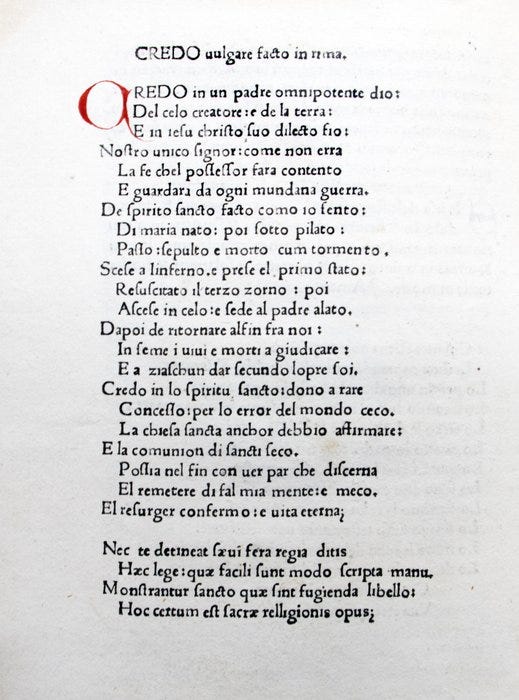 CREDO uulgare facto in rima.
CREDO in un padre omnipotente dio:
Del celo creatore: e de la terra:
E in iesu christo suo dilecto fio:
Nostro unico signor: come non erra
La fe chel possessor fara contento
E guardara da ogni mundana guerra.
De spirito sancto facto como io sento:
Di maria nato: poi sotto pilato:
Passo: sepulto e morto cum tormento.
Scese a linferno. e prese el primo stato:
Resuscitato il terzo zorno: poi
Ascese in celo: e sede al padre alato.
Dapoi de ritornare alfin fra noi:
In seme i uiui e morti a giudicare:
E a ziaschun dar secundo lopre soi.
Credo in lo spiritu sancto: dono a rare
Concesso: per lo error del mondo ceco.
La chiesa sancta anchor debbio affirmare:
E la comunion di sancti seco.
Possia nel fin con uer par che discerna
El remetere di fal mia mente: e meco.
El resurger confermo: e uita eterna;
Nec te detineat sæui fera regia ditis
Hæc lege: quæ facili sunt modo scripta manu.
Monstrantur sancto quæ sint fugienda libello:
Hoc certum est sacræ relligionis opus;